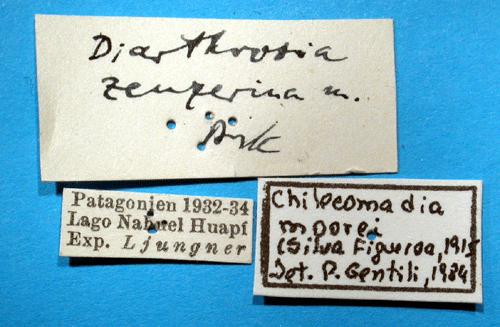 Diarthrosia
zeuzerina m.
Ark
Patagonien 1932-34
Lago Nahuel Huapi
Exp. Ljungner
Chilecomadia
moorei
(Silva Figueroa, 1915
Det. P. Gentili, 1984